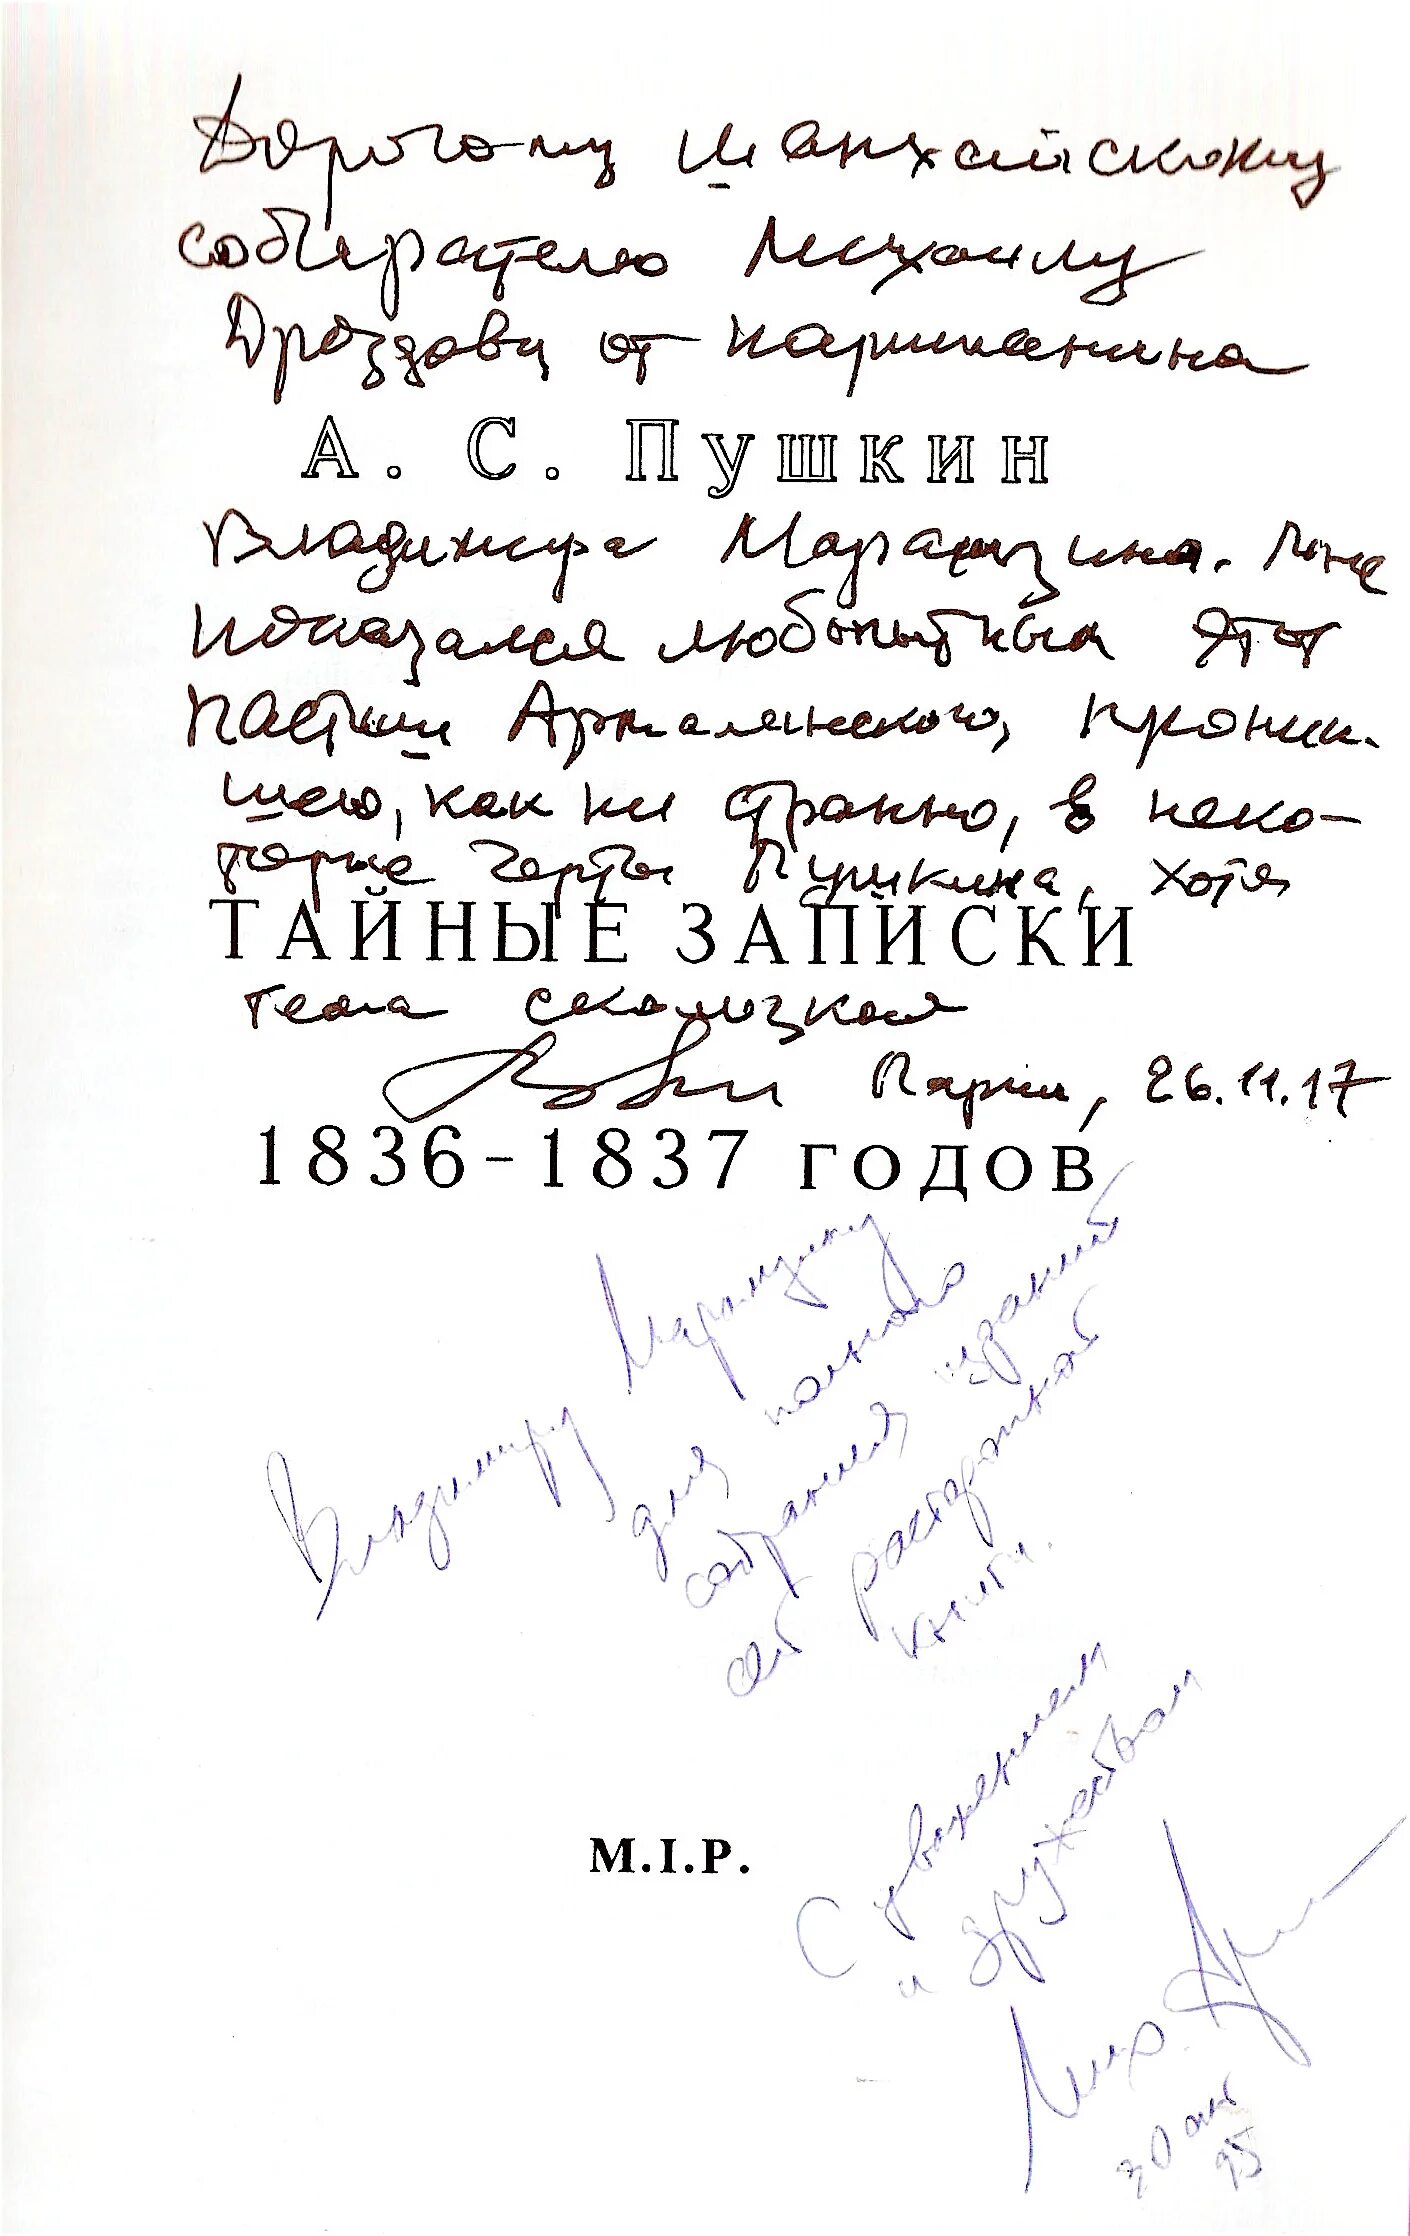 Дорогому шанхайскому
собирателю Михаилу
Дроздову от парижанина
А. С. Пушкин
Владимира Марамзина. Мне
показался любопытным этот
пастиш Армалинского, проник-
шего, как ни странно, в неко-
торые черты Пушкина, хотя
ТАЙНЫЕ ЗАПИСКИ
тема скользкая
Париж, 26.11.17
1836-1837 ГОДОВ
Владимиру Марамзину
для полного
собрания изданий
сей
книги.
С уважением
и дружеством
Мих. Арм
30 окт
95
M.I.P.